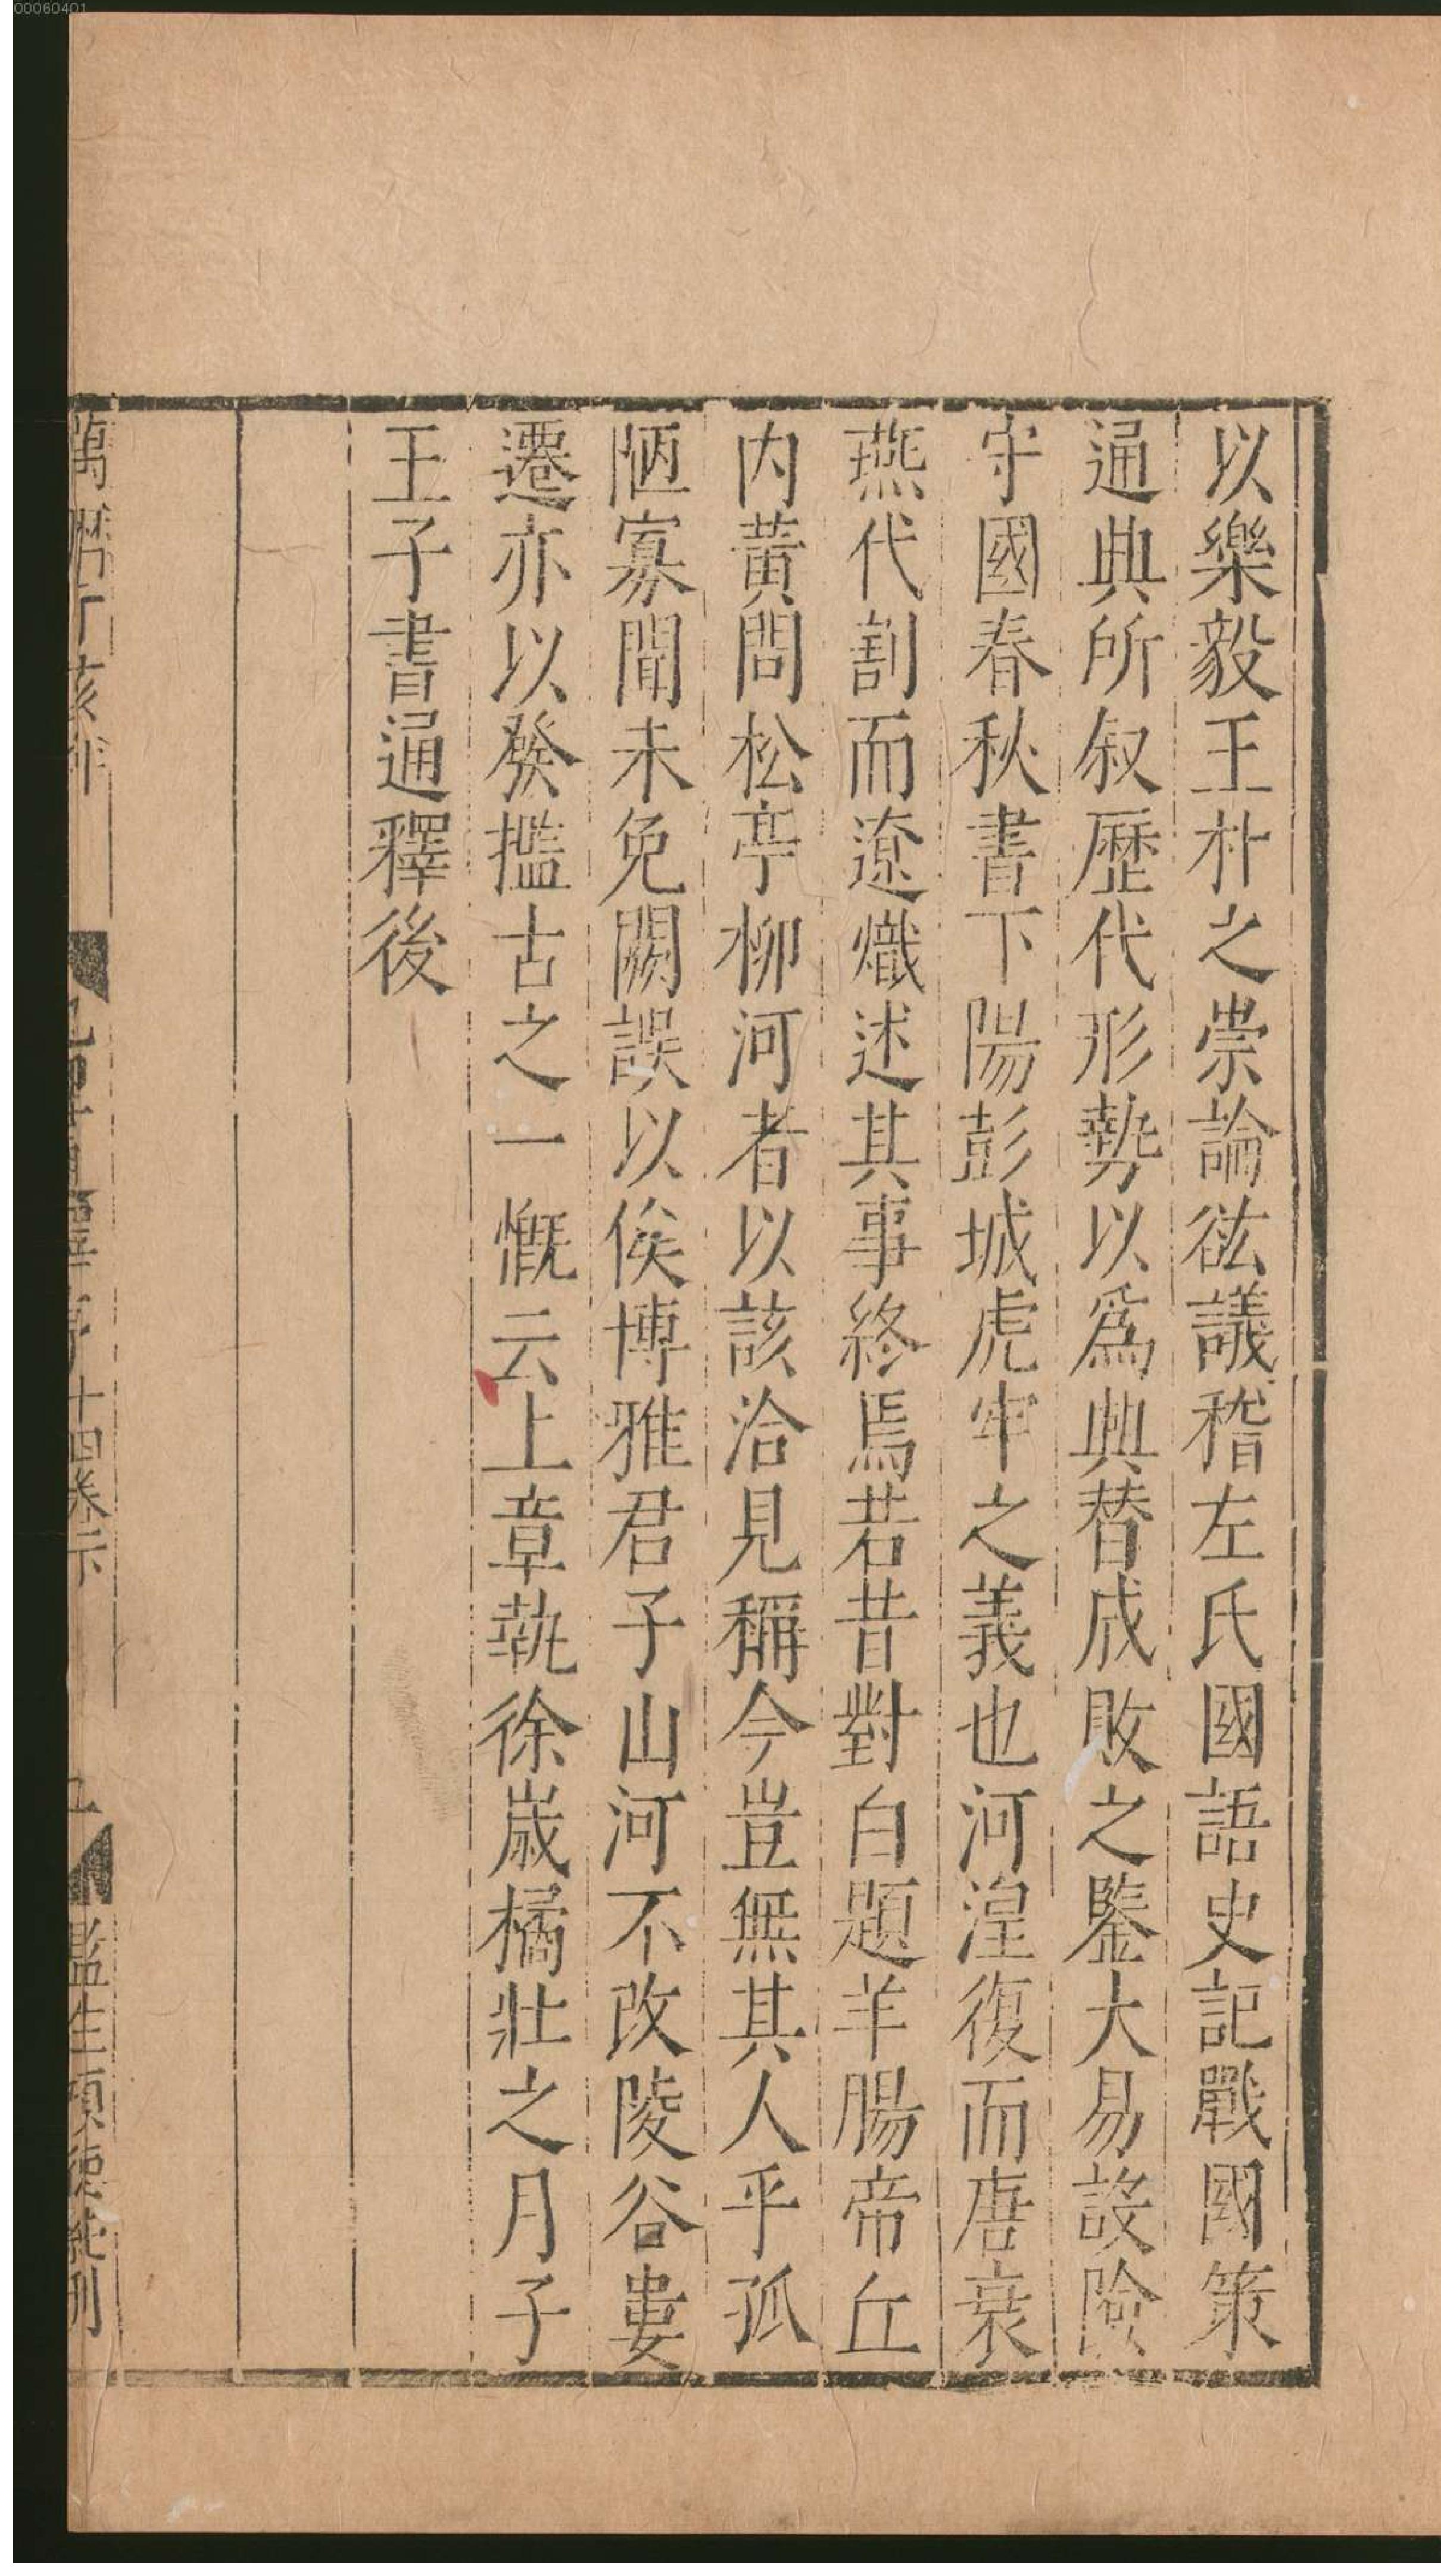 00060401
以樂毅王朴之崇論谹議稽左氏國語史記戰國策
通典所叙歷代形勢以爲興替成敗之鑒大易設險
守國春秋書下陽彭城虎牢之義也河湟復而唐衰
燕代割而遼熾述其事終焉若昔對白題羊腸帝丘
内黃問松亭柳河者以該洽見稱今豈無其人乎孤
陋寡聞未免闕誤以俟博雅君子山河不改陵谷婁
遷亦以發攬古之一慨云上章執徐歲橘壯之月子
王子書通釋後
萬曆丁亥刊
通釋序 十四卷尾 五
監生項德純刊